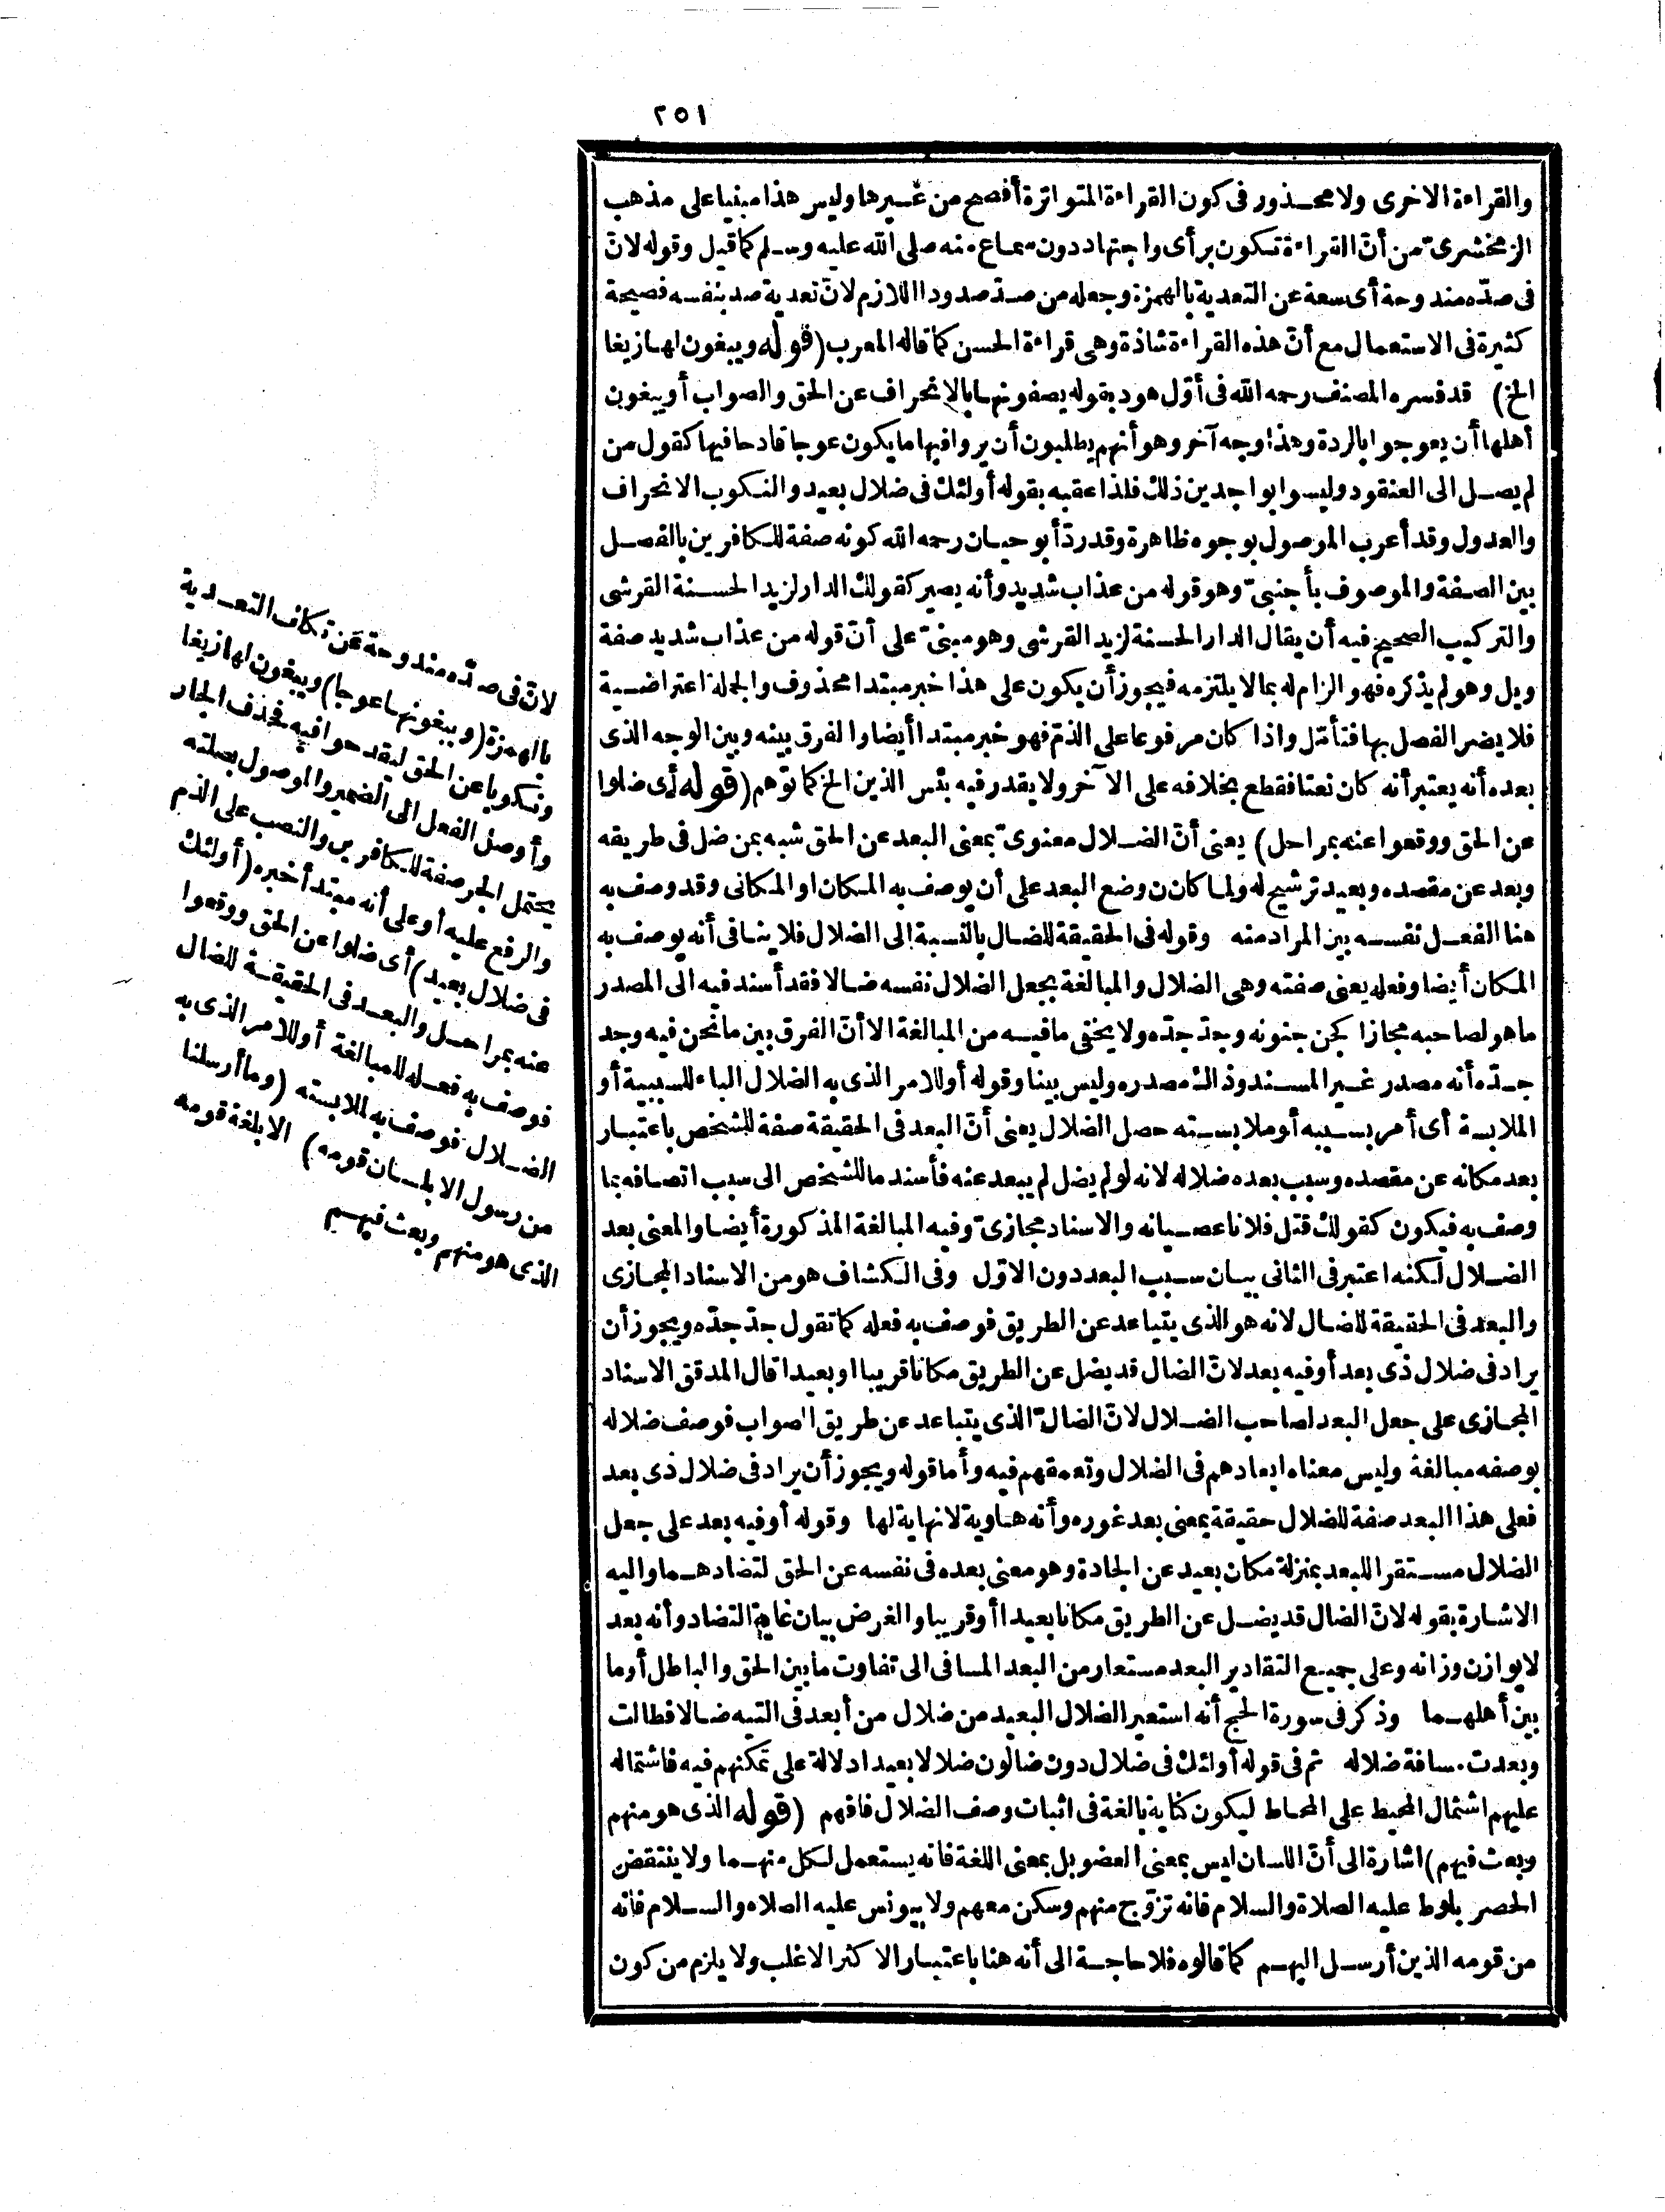 ٢٥١
والقراءة الاخرى ولا محذور فى كون القراءة المتواترة أفصح من غيرها وليس هذا مبنيا على مذهب
الزمخشرىّ من أنّ القراءة تكون برأى واجتهاد دون سماع منه صلى الله عليه وسلم كما قيل وقوله لانّ
فى صدّه مندوحة أى سعة عن التعدية بالهمزة وجعله من صدّ صدودا اللازم لانّ تعدية صد بنفسه فصيحة
كثيرة فى الاستعمال مع أنّ هذه القراءة شاذة وهى قراءة الحسن كما قاله المعرب (قوله ويبغون لها زيغا
الخ) قد فسره المصنف رحمه الله فى أوّل هود بقوله يصفونها بالانحراف عن الحق والصواب أو يبغون
أهلها أن يعوجوا بالردة وهذا وجه آخر وهو أنهم يطلبون أن يروا فيها ما يكون عوجا قادحا فيها كقول من
لم يصل الى العنقود وليسوا بواجدين ذلك فلذا عقبه بقوله أولئك فى ضلال بعيد والنكوب الانحراف
والعدول وقد أعرب الموصول بوجوه ظاهرة وقد ردّ أبو حيان رحمه الله كونه صفة للكافرين بالفصل
بين الصفة والموصوف بأجنبىّ وهو قوله من عذاب شديد وأنه يصير كقولك الدار لزيد الحسنة القرشى
والتركيب الصحيح فيه أن يقال الدار الحسنة لزيد القرشى وهو مبنىّ على أنّ قوله من عذاب شديد صفة
ويل وهو لم يذكره فهو الزام له بما لا يلتزمه فيجوز أن يكون على هذا خبر مبتدا محذوف والجملة اعتراضية
فلا يضر الفصل بها فتأمّل واذا كان مرفوعا على الذمّ فهو خبر مبتدا أيضا والفرق بينه وبين الوجه الذى
بعده أنه يعتبر أنه كان نعتا فقطع بخلافه على الآخر ولا يقدر فيه بئس الذين الخ كما توهم (قوله أى ضلوا
عن الحق ووقعوا عنه بمراحل) يعنى أنّ الضلال معنوىّ بمعنى البعد عن الحق شبه بمن ضل فى طريقه
وبعد عن مقصده وبعيد ترشيح له ولما كان وضع البعد على أن يوصف به المكان او المكانى وقد وصف به
هنا الفعل نفسه بين المراد منه وقوله فى الحقيقة للضال بالنسبة إلى الضلال فلا ينافى أنه يوصف به
المكان أيضا وفعله يعنى صفته وهى الضلال والمبالغة بجعل الضلال نفسه ضالا فقد أسند فيه الى المصدر
ما هو لصاحبه مجازا كجن جنونه وجدّ جدّه ولا يخفى ما فيه من المبالغة الا أنّ الفرق بين ما نحن فيه وجد
جدّه أنه مصدر غير المسند وذاك مصدره وليس بينا وقوله أو للامر الذى به الضلال الباء للسببية أو
الملابسة أى أمر بسببه أو ملابسته حصل الضلال يعنى أنّ البعد فى الحقيقة صفة للشخص باعتبار
بعد مكانه عن مقصده وسبب بعده ضلاله لانه لو لم يضل لم يبعد عنه فأسند ما للشخص الى سبب اتصافه بما
وصف به فيكون كقولك قتل فلانا عصيانه والاسناد مجازىّ وفيه المبالغة المذكورة أيضا والمعنى بعد
الضلال لكنه اعتبر فى الثانى بيان سبب البعد دون الاوّل وفى الكشاف هو من الاسناد المجازى
والبعد فى الحقيقة للضال لانه هو الذى يتباعد عن الطريق فوصف به فعله كما تقول جدّ جدّه ويجوز أن
يراد فى ضلال ذى بعد أو فيه بعد لانّ الضال قد يضل عن الطريق مكانا قريبا او بعيدا قال المدقق الاسناد
المجازى على جعل البعد لصاحب الضلال لانّ الضالّ الذى يتباعد عن طريق الصواب فوصف ضلاله
بوصفه مبالغة وليس معناه ابعادهم فى الضلال وتعمقهم فيه وأما قوله ويجوز أن يراد فى ضلال ذى بعد
فعلى هذا البعد صفة للضلال حقيقة بمعنى بعد غوره وأنه هاوية لا نهاية لها وقوله أو فيه بعد على جعل
الضلال مستقرا للبعد بمنزلة مكان بعيد عن الجادة وهو معنى بعده فى نفسه عن الحق لتضادهما واليه
الاشارة بقوله لانّ الضال قد يضل عن الطريق مكانا بعيدا أو قريبا والغرض بيان غاية التضاد وأنه بعد
لا يوازن وزانه وعلى جميع التقادير البعد مستعار من البعد المسافى الى تفاوت ما بين الحق والباطل أو ما
بين أهلهما وذكر فى سورة الحج أنه استعير الضلال البعيد من ضلال من أبعد فى التيه ضالا فطالت
وبعدت مسافة ضلاله ثم فى قوله أولئك فى ضلال دون ضالون ضلالا بعيدا دلالة على تمكنهم فيه فاشتماله
عليهم اشتمال المحيط على المحاط ليكون كناية بالغة فى اثبات وصف الضلال فافهم (قوله الذى هو منهم
وبعث فيهم) اشارة الى أنّ اللسان ليس بمعنى العضو بل بمعنى اللغة فانه يستعمل لكل منهما ولا ينتقض
الحصر بلوط عليه الصلاة والسلام فانه تزوّج منهم وسكن معهم ولا بيونس عليه الصلاه والسلام فانه
من قومه الذين أرسل اليهم كما قالوه فلا حاجة الى أنه هنا باعتبار الاكثر الاغلب ولا يلزم من كون
لانّ فى صدّه مندوحة عن تكاف التعدية
بالهمزة (ويبغونها عوجا) ويبغون لها زيغا
ونكوبا عن الحق ليقدحوا فيه فحذف الجار
وأوصل الفعل الى الضمير والموصول بصلته
يحتمل الجر صفة للكافرين والنصب على الذم
والرفع عليه أو على أنه مبتدأ خبره (أولئك
فى ضلال بعيد) أى ضلوا عن الحق ووقعوا
عنه بمراحل والبعد فى الحقيقة للضال
فوصف به فعله للمبالغة أو للامر الذى به
الضلال فوصف به لملابسته (وما أرسلنا
من رسول الا بلسان قومه) الا بلغة قومه
الذى هو منهم وبعث فيهم